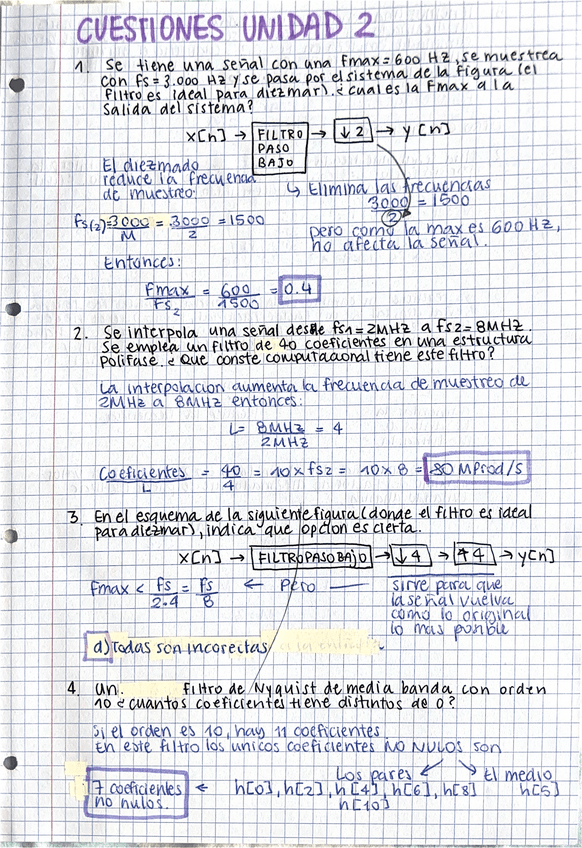 CUESTIONES UNIDAD 2
1. Se tiene una señal con una Fmax = 600 HZ, se muestrea
con fs = 3.000 HZ y se pasa por el sistema de la figura (el
filtro es ideal para diezmar). ¿cual es la Fmax a la
salida del sistema?
x[n] → FILTRO PASO BAJO → ↓2 → y[n]
El diezmado
reduce la frecuencia
de muestreo:
↳ Elimina las frecuencias
3000/2 = 1500
fs(2) = 3000/M = 3000/2 = 1500
pero como la max es 600 HZ,
no afecta la señal.
Entonces:
Fmax/Fs2 = 600/1500 = 0.4
2. Se interpola una señal desde fs1 = 2MHZ a fs2 = 8MHZ.
Se emplea un filtro de 40 coeficientes en una estructura
polifase. ¿Que conste computacional tiene este filtro?
La interpolacion aumenta la frecuencia de muestreo de
2MHZ a 8MHZ entonces:
L = 8MHZ/2MHZ = 4
Coeficientes/L = 40/4 = 10 x fs2 = 10 x 8 = 80 MProd/s
3. En el esquema de la siguiente figura (donde el filtro es ideal
para diezmar), indica que opcion es cierta.
x[n] → FILTRO PASO BAJO → ↓4 → ↑4 → y[n]
Fmax < fs/2·4 = fs/8 ← Pero
sirve para que
la señal vuelva
como lo original
lo mas posible
d) Todas son incorrectas
4. Un. filtro de Nyquist de media banda con orden
10 ¿cuantos coeficientes tiene distintos de 0?
Si el orden es 10, hay 11 coeficientes.
En este filtro los unicos coeficientes NO NULOS son
Los pares El medio
7 coeficientes ← h[0], h[2], h[4], h[6], h[8] h[5]
no nulos. h[10]